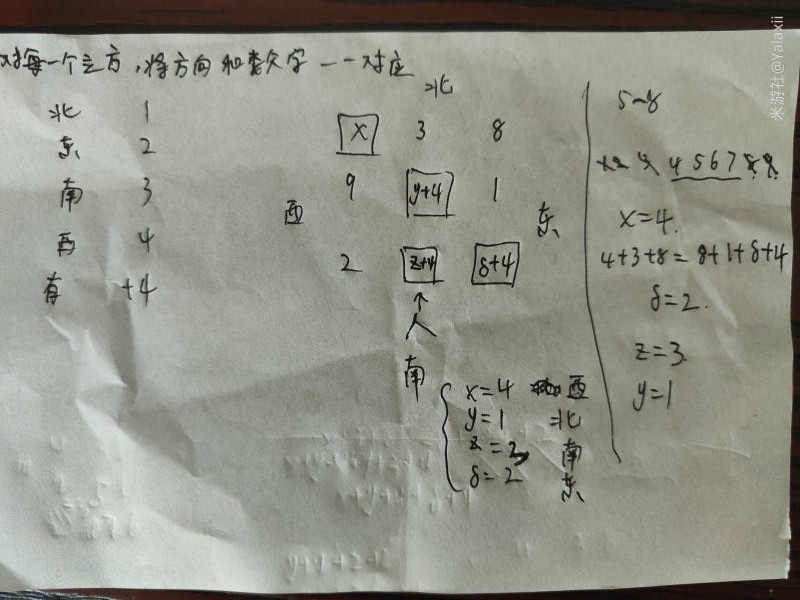 对每一个立方,将方向和数字一一对应
北 1
东 2
南 3
西 4
有 +4
北
x 3 8
9 y+4 1
西 东
2 z+4 δ+4
↑
人
南
x=4 西
y=1 北
z=3 南
δ=2 东
5~8
4 5 6 7
x=4.
4+3+8=8+1+δ+4
δ=2.
z=3.
y=1
米游社@Yalaxii